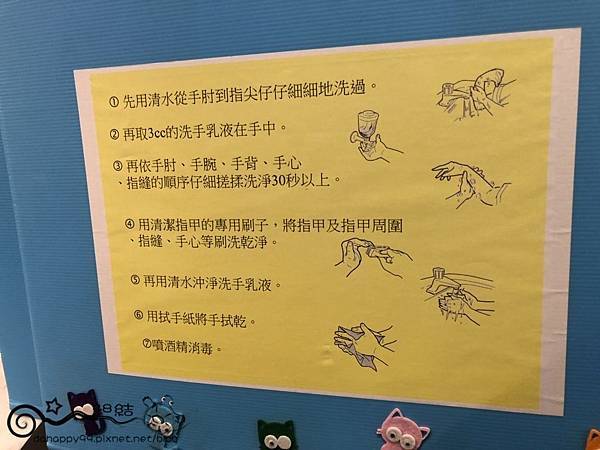 ① 先用清水從手肘到指尖仔仔細細地洗過。
② 再取3cc的洗手乳液在手中。
③ 再依手肘、手腕、手背、手心
、指縫的順序仔細搓揉洗淨30秒以上。
④ 用清潔指甲的專用刷子，將指甲及指甲周圍
、指縫、手心等刷洗乾淨。
⑤ 再用清水沖淨洗手乳液。
⑥ 用拭手紙將手拭乾。
⑦噴酒精消毒。
dahappy99.pixnet.net/blog